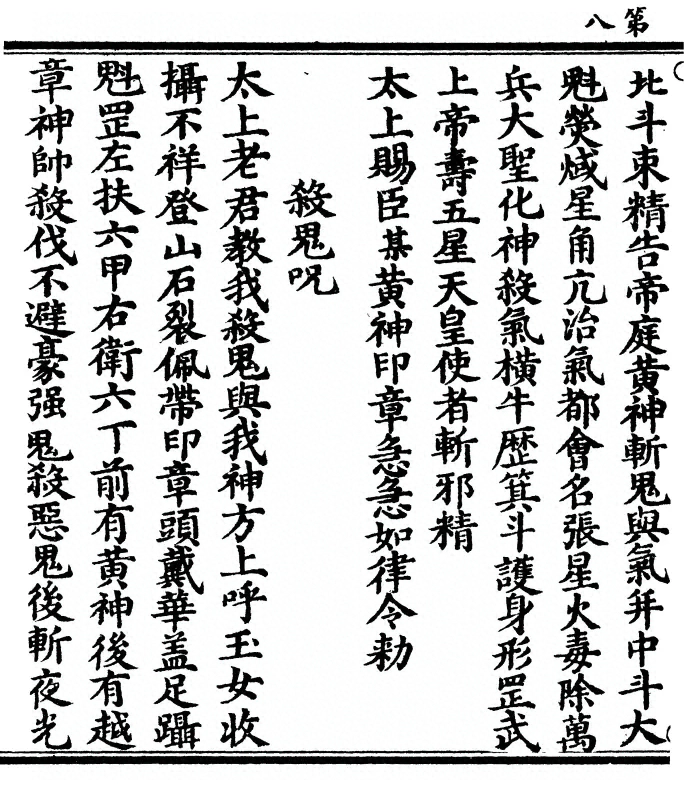 第八
北斗束精告帝庭黄神斬鬼與氣并中斗大
魁熒惑星角亢治氣都會名張星火毒除萬
兵大聖化神殺氣橫牛歷箕斗護身形罡武
上帝壽五星天皇使者斬邪精
太上賜臣某黄神印章急急如律令勑
殺鬼呪
太上老君教我殺鬼與我神方上呼玉女收
攝不祥登山石裂佩帶印章頭戴華盖足躡
魁罡左扶六甲右衛六丁前有黄神後有越
章神帥殺伐不避豪强鬼殺惡鬼後斬夜光